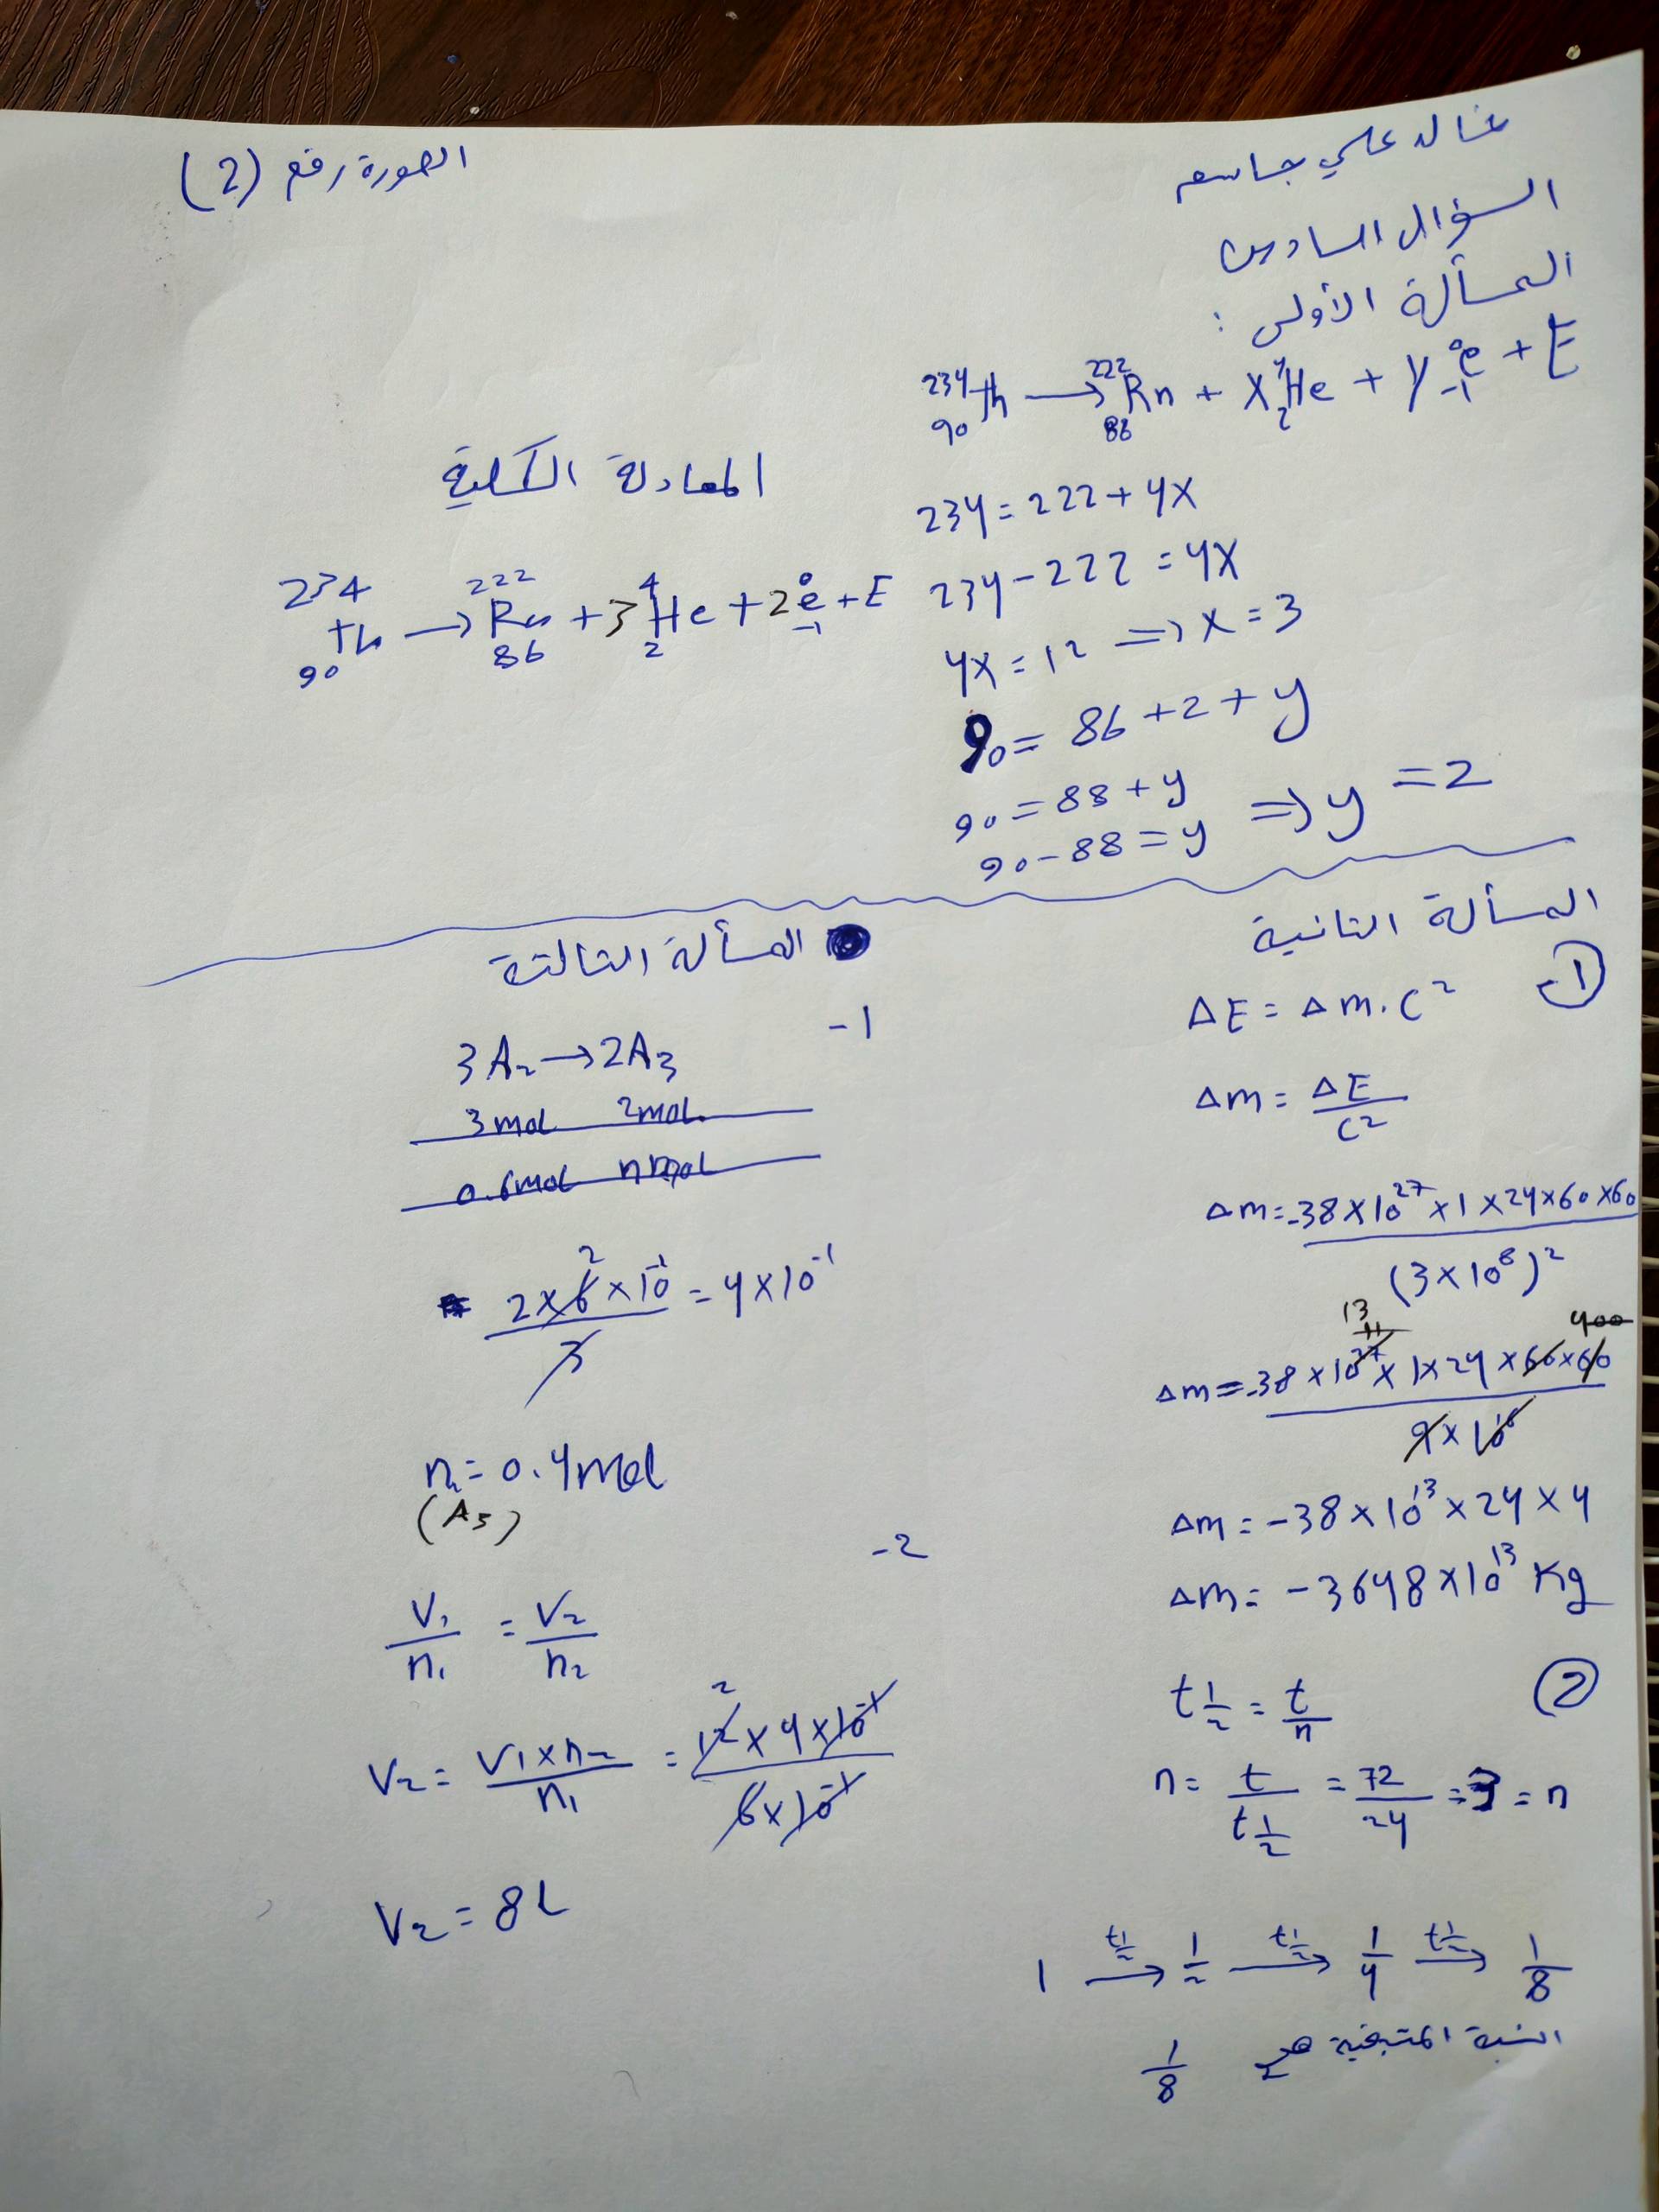 خالد علي جاسم
الصورة رقم (2)
السؤال السادس
المسألة الأولى :
²³⁴₉₀Th → ²²²₈₆Rn + X ⁴₂He + Y ⁰₋₁e + E
234 = 222 + 4X
234 - 222 = 4X
4X = 12 => X = 3
90 = 86 + 2 + y
90 = 88 + y
90 - 88 = y => y = 2
المعادلة الكلية
²³⁴₉₀Th → ²²²₈₆Rn + 3 ⁴₂He + 2 ⁰₋₁e + E
المسألة الثانية
1-
ΔE = Δm . C²
Δm = ΔE / C²
Δm = -38 × 10²⁷ × 1 × 24 × 60 × 60 / (3 × 10⁸)²
Δm = -38 × 10²⁷ × 1 × 24 × 60 × 60 / 9 × 10¹⁶
13 11 400
Δm = -38 × 10¹³ × 24 × 4
Δm = -3648 × 10¹³ Kg
2
t½ = t / n
n = t / t½ = 72 / 24 = 3 = n
1 →(t½) 1/2 →(t½) 1/4 →(t½) 1/8
النسبة المتبقية هي 1/8
المسألة الثالثة
-1
3A₂ → 2A₃
3mol 2mol
0.6mol n mol
2 × 6 × 10⁻¹ / 3 = 4 × 10⁻¹
2
n = 0.4mol
(A₃)
-2
V₁ / n₁ = V₂ / n₂
V₂ = V₁ × n₂ / n₁ = 12 × 4 × 10⁻¹ / 6 × 10⁻¹
2
V₂ = 8L